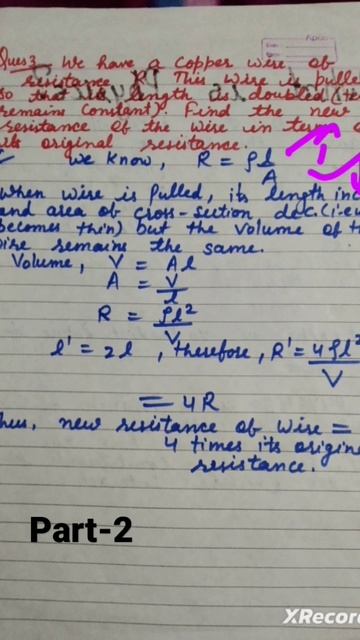 Ques3 We have a copper wire of
resistance R. This wire is pulle
so that its length is doubled (te
remains constant). Find the new
resistance of the wire in term
its original resistance.
we know, R = ρl/A
when wire is pulled, its length inc
and area of cross-section dec. (i.e
becomes thin) but the volume of t
wire remains the same.
Volume, V = Al
A = V/l
R = ρl²/V
l' = 2l , therefore, R' = 4ρl²/V
= 4R
hus, new resistance of wire =
4 times its origina
resistance.
Part-2
XRecor